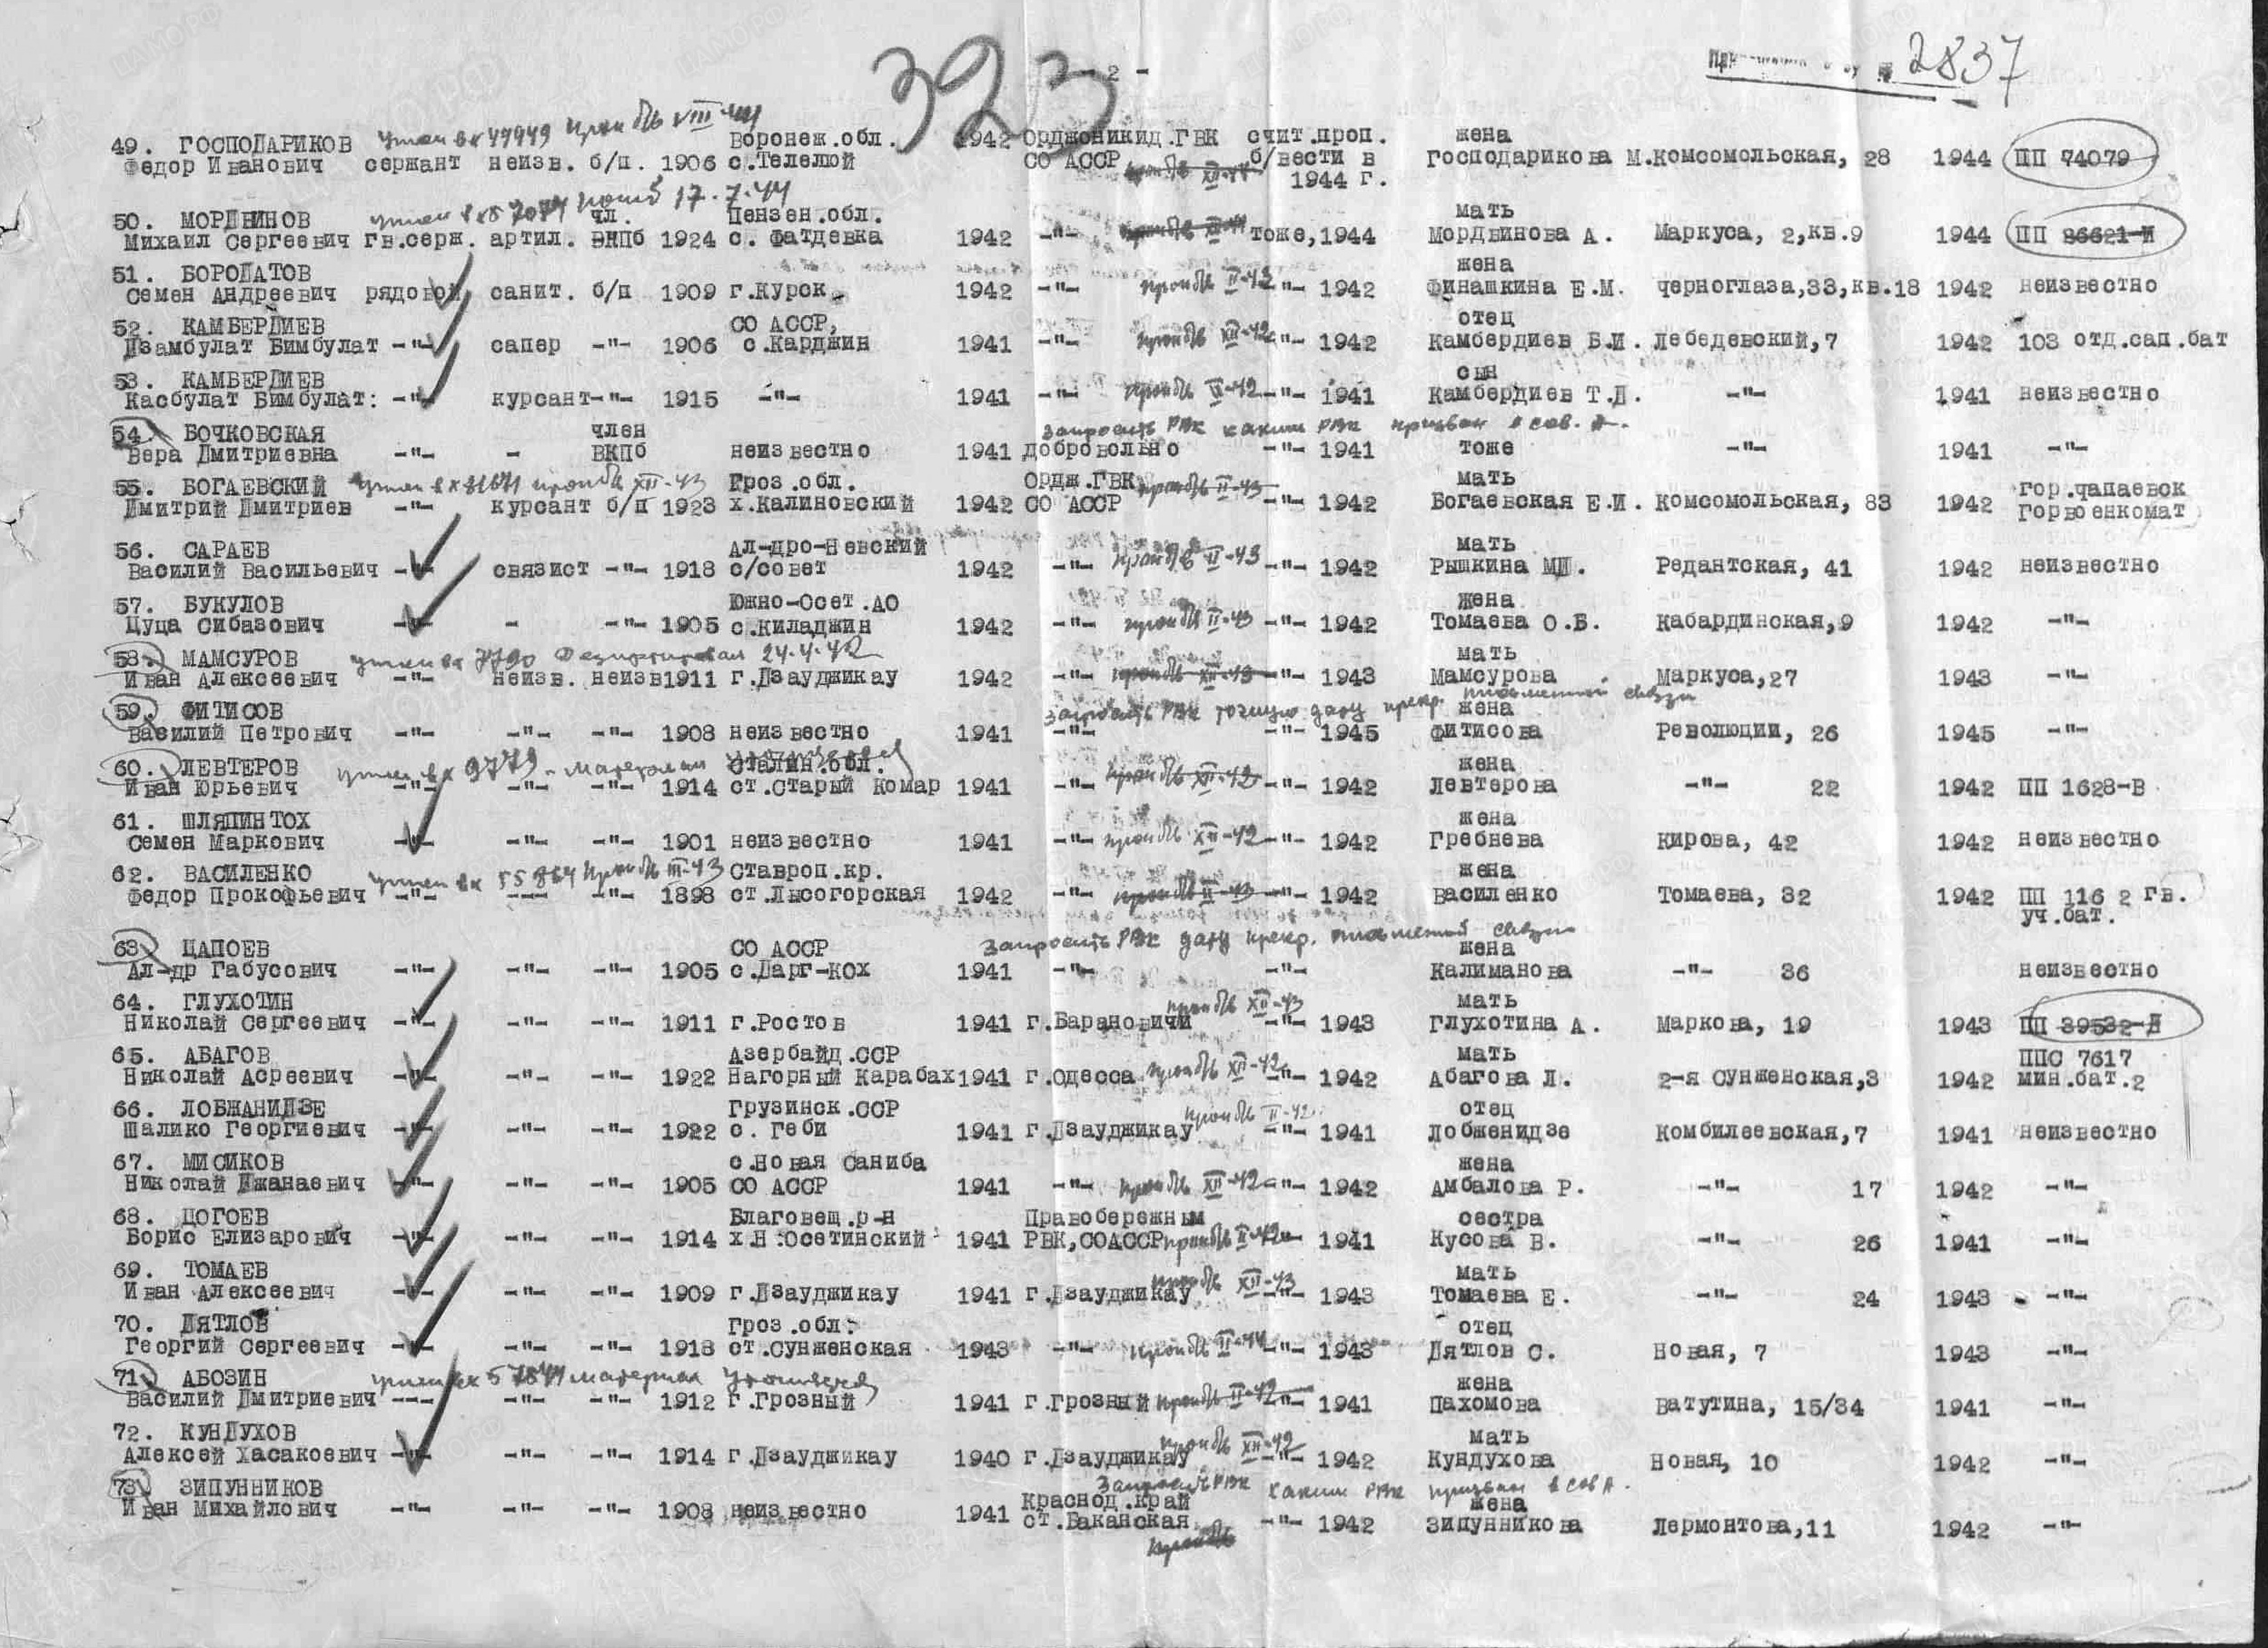 323
- 2 -
2837
49. ГОСПОДАРИКОВ учтен вх 47949 проп б/в VIII-44 Воронеж.обл. 1942 Орджоникид.ГВК счит.проп. жена
Федор Иванович сержант неизв. б/п. 1906 с.Телелюй СО АССР б/вести в Господарикова М. Комсомольская, 28 1944 ПП 74079
1944 г.
50. МОРДВИНОВ учтен погиб 17.7.44 чл. Пензен.обл. мать
Михаил Сергеевич гв.серж. артил. ВКПб 1924 с. Фатдевка 1942 -"- тоже,1944 Мордвинова А. Маркуса, 2,кв.9 1944 ПП 86621-И
51. БОРОДАТОВ жена
Семен Андреевич рядовой санит. б/п 1909 г.Курск 1942 -"- проп б/в II-43 -"- 1942 Финашкина Е.М. Черноглаза,33,кв.18 1942 неизвестно
52. КАМБЕРДИЕВ СО АССР, отец
Дзамбулат Бимбулат -"- сапер -"- 1906 с.Карджин 1941 -"- проп б/в XII-42 -"- 1942 Камбердиев Б.И. Лебедевский,7 1942 103 отд.сап.бат
53. КАМБЕРДИЕВ сын
Касбулат Бимбулат: -"- курсант -"- 1915 -"- 1941 -"- проп б/в II-42 -"- 1941 Камбердиев Т.Д. -"- 1941 неизвестно
54. БОЧКОВСКАЯ член запросить РВК каким РВК призван в сов. А.
Вера Дмитриевна -"- - ВКПб неизвестно 1941 добровольно -"- 1941 тоже -"- 1941 -"-
55. БОГАЕВСКИЙ учтен вх 81671 проп б/в XII-43 Гроз.обл. Ордж.ГВК проп б/в II-43 мать гор.Чапаевск
Дмитрий Дмитриев -"- курсант б/п 1923 х.Калиновский 1942 СО АССР -"- 1942 Богаевская Е.И. Комсомольская, 83 1942 Горвоенкомат
56. САРАЕВ Ал-дро-Невский мать
Василий Васильевич -"- связист -"- 1918 с/совет 1942 -"- проп б/в II-43 -"- 1942 Рышкина МП. Редантская, 41 1942 неизвестно
57. БУКУЛОВ Южно-Осет.АО жена
Цуца Сибазович -"- - -"- 1905 с.Киладжин 1942 -"- проп б/в II-43 -"- 1942 Томаева О.Б. Кабардинская,9 1942 -"-
58. МАМСУРОВ учтен вх 7790 Дезертировал 24.4.42 мать
Иван Алексеевич -"- неизв. неизв 1911 г.Дзауджикау 1942 -"- проп б/в XII-43 -"- 1943 Мамсурова Маркуса,27 1943 -"-
59. ФИТИСОВ запросить РВК точную дату прекр. письменной связи жена
Василий Петрович -"- -"- -"- 1908 неизвестно 1941 -"- -"- 1945 Фитисова Революции, 26 1945 -"-
60. ЛЕВТЕРОВ учтен вх 9779 - материал Сталин.обл. жена
Иван Юрьевич -"- -"- -"- 1914 ст.Старый Комар 1941 -"- проп б/в XII-42 -"- 1942 Левтерова -"- 22 1942 ПП 1628-В
61. ШЛЯПИНТОХ жена
Семен Маркович -"- -"- -"- 1901 неизвестно 1941 -"- проп б/в XII-42 -"- 1942 Гребнева Кирова, 42 1942 неизвестно
62. ВАСИЛЕНКО учтен вх 55864 проп б/в III-43 Ставроп.кр. жена
Федор Прокофьевич -"- --- -"- 1898 ст.Лысогорская 1942 -"- проп б/в II-43 -"- 1942 Василенко Томаева, 32 1942 ПП 116 2 гв.
уч.бат.
63. ЦАПОЕВ СО АССР запросить РВК дату прекр. письменной связи жена
Ал-др Габусович -"- -"- -"- 1905 с.Дарг-Кох 1941 -"- -"- Калиманова -"- 36 неизвестно
64. ГЛУХОТИН проп б/в XII-43 мать
Николай Сергеевич -"- -"- -"- 1911 г.Ростов 1941 г.Барановичи -"- 1943 Глухотина А. Маркова, 19 1943 ПП 39532-Д
65. АБАГОВ Азербайд.ССР мать ППС 7617
Николай Асреевич -"- -"- -"- 1922 Нагорный Карабах 1941 г.Одесса проп б/в XII-42 -"- 1942 Абагова Л. 2-я Сунженская,3 1942 мин.бат.2
66. ЛОБЖАНИДЗЕ Грузинск.ССР проп б/в II-42 отец
Шалико Георгиевич -"- -"- -"- 1922 с. Геби 1941 г.Дзауджикау -"- 1941 Лобженидзе Комбилеевская,7 1941 неизвестно
67. МИСИКОВ с.Новая Саниба жена
Николай Джанаевич -"- -"- -"- 1905 СО АССР 1941 -"- проп б/в XII-42 -"- 1942 Амбалова Р. -"- 17 1942 -"-
68. ДОГОЕВ Благовещ.р-н Правобережным сестра
Борис Елизарович -"- -"- -"- 1914 х.Н.Осетинский 1941 РВК,СОАССР проп б/в II-42 -"- 1941 Кусова В. -"- 26 1941 -"-
69. ТОМАЕВ проп б/в XII-43 мать
Иван Алексеевич -"- -"- -"- 1909 г.Дзауджикау 1941 г.Дзауджикау -"- 1943 Томаева Е. -"- 24 1943 -"-
70. ДЯТЛОВ Гроз.обл. отец
Георгий Сергеевич -"- -"- -"- 1918 ст.Сунженская 1943 -"- проп б/в II-44 -"- 1943 Дятлов С. Новая, 7 1943 -"-
71. АБОЗИН учтен вх 57844 материал уточняется жена
Василий Дмитриевич --- -"- -"- 1912 г.Грозный 1941 г.Грозный проп б/в II-42 -"- 1941 Пахомова Ватутина, 15/34 1941 -"-
72. КУНДУХОВ проп б/в XII-42 мать
Алексей Хасакоевич -"- -"- -"- 1914 г.Дзауджикау 1940 г.Дзауджикау -"- 1942 Кундухова Новая, 10 1942 -"-
73. ЗИПУННИКОВ запросить РВК каким РВК призван в сов А.
Иван Михайлович -"- -"- -"- 1908 неизвестно 1941 Краснод.край жена
ст.Баканская -"- 1942 Зипунникова Лермонтова,11 1942 -"-